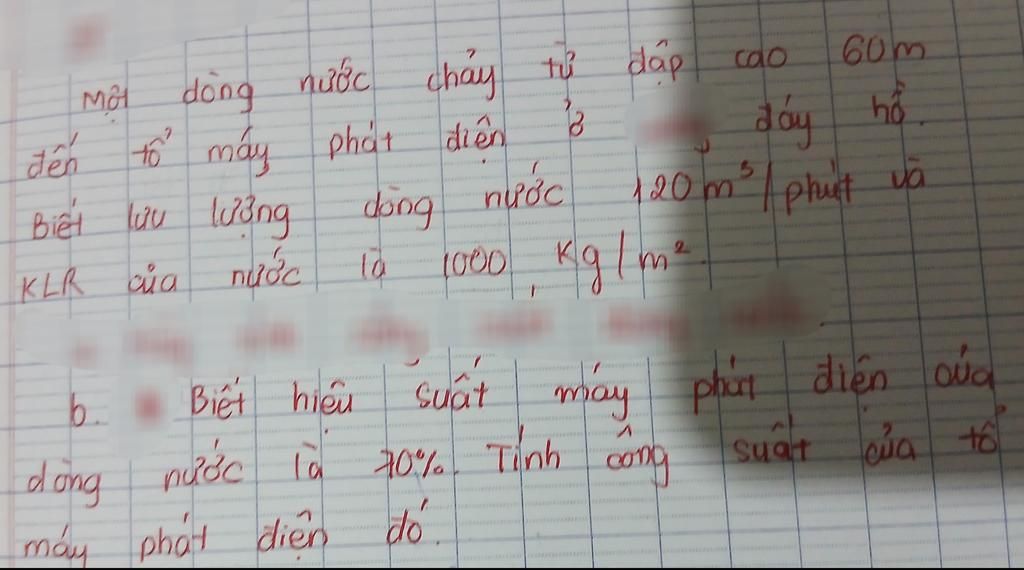 Một dòng nước chảy từ đập cao 60m
đến tổ máy phát điện ở đáy hồ.
Biết lưu lượng dòng nước 120 m³/phút và
KLR của nước là 1000 kg/m².
b. Biết hiệu suất máy phát điện của
dòng nước là 70%. Tính công suất của tổ
máy phát điện đó.